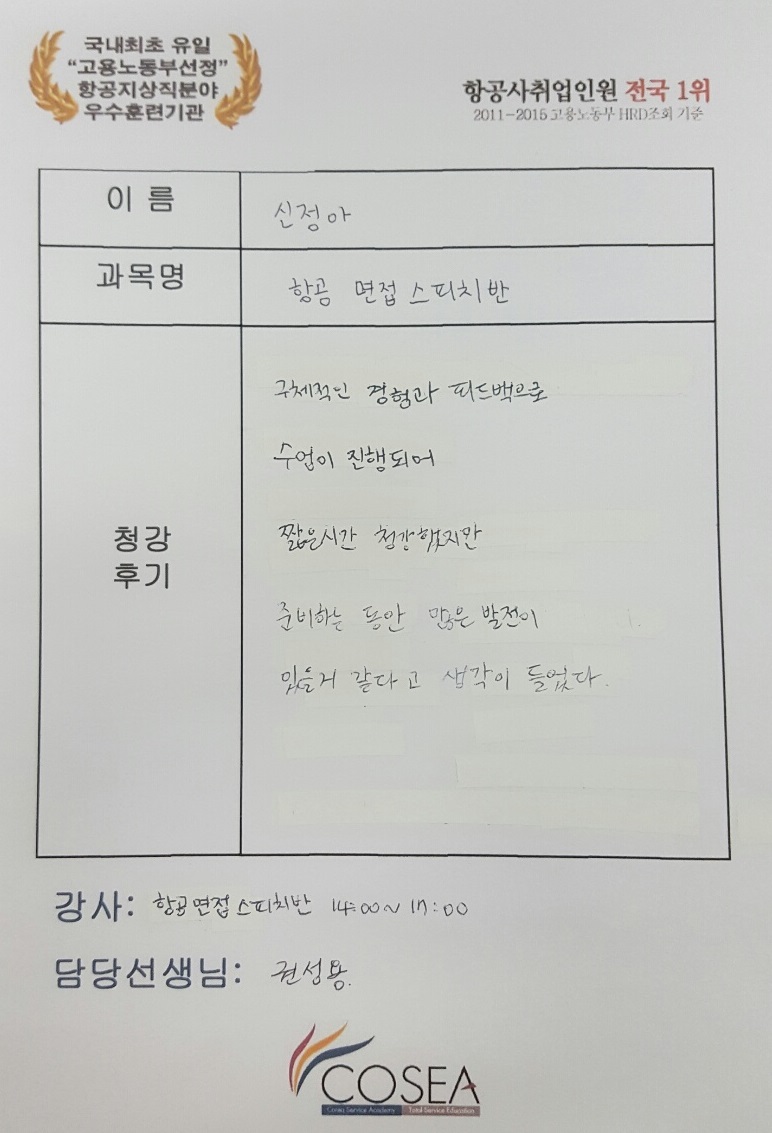 국내최초 유일
“고용노동부선정”
항공지상직분야
우수훈련기관
항공사취업인원 전국 1위
2011-2015 고용노동부 HRD조회 기준
이 름
신정아
과목명
항공 면접 스피치반
청강
후기
구체적인 경험과 피드백으로
수업이 진행되어
짧은시간 청강했지만
준비하는 동안 많은 발전이
있을거 같다고 생각이 들었다.
강사: 항공면접스피치반 14:00~17:00
담당선생님: 권성용.
COSEA
Cosea Service Academy Total Service Education